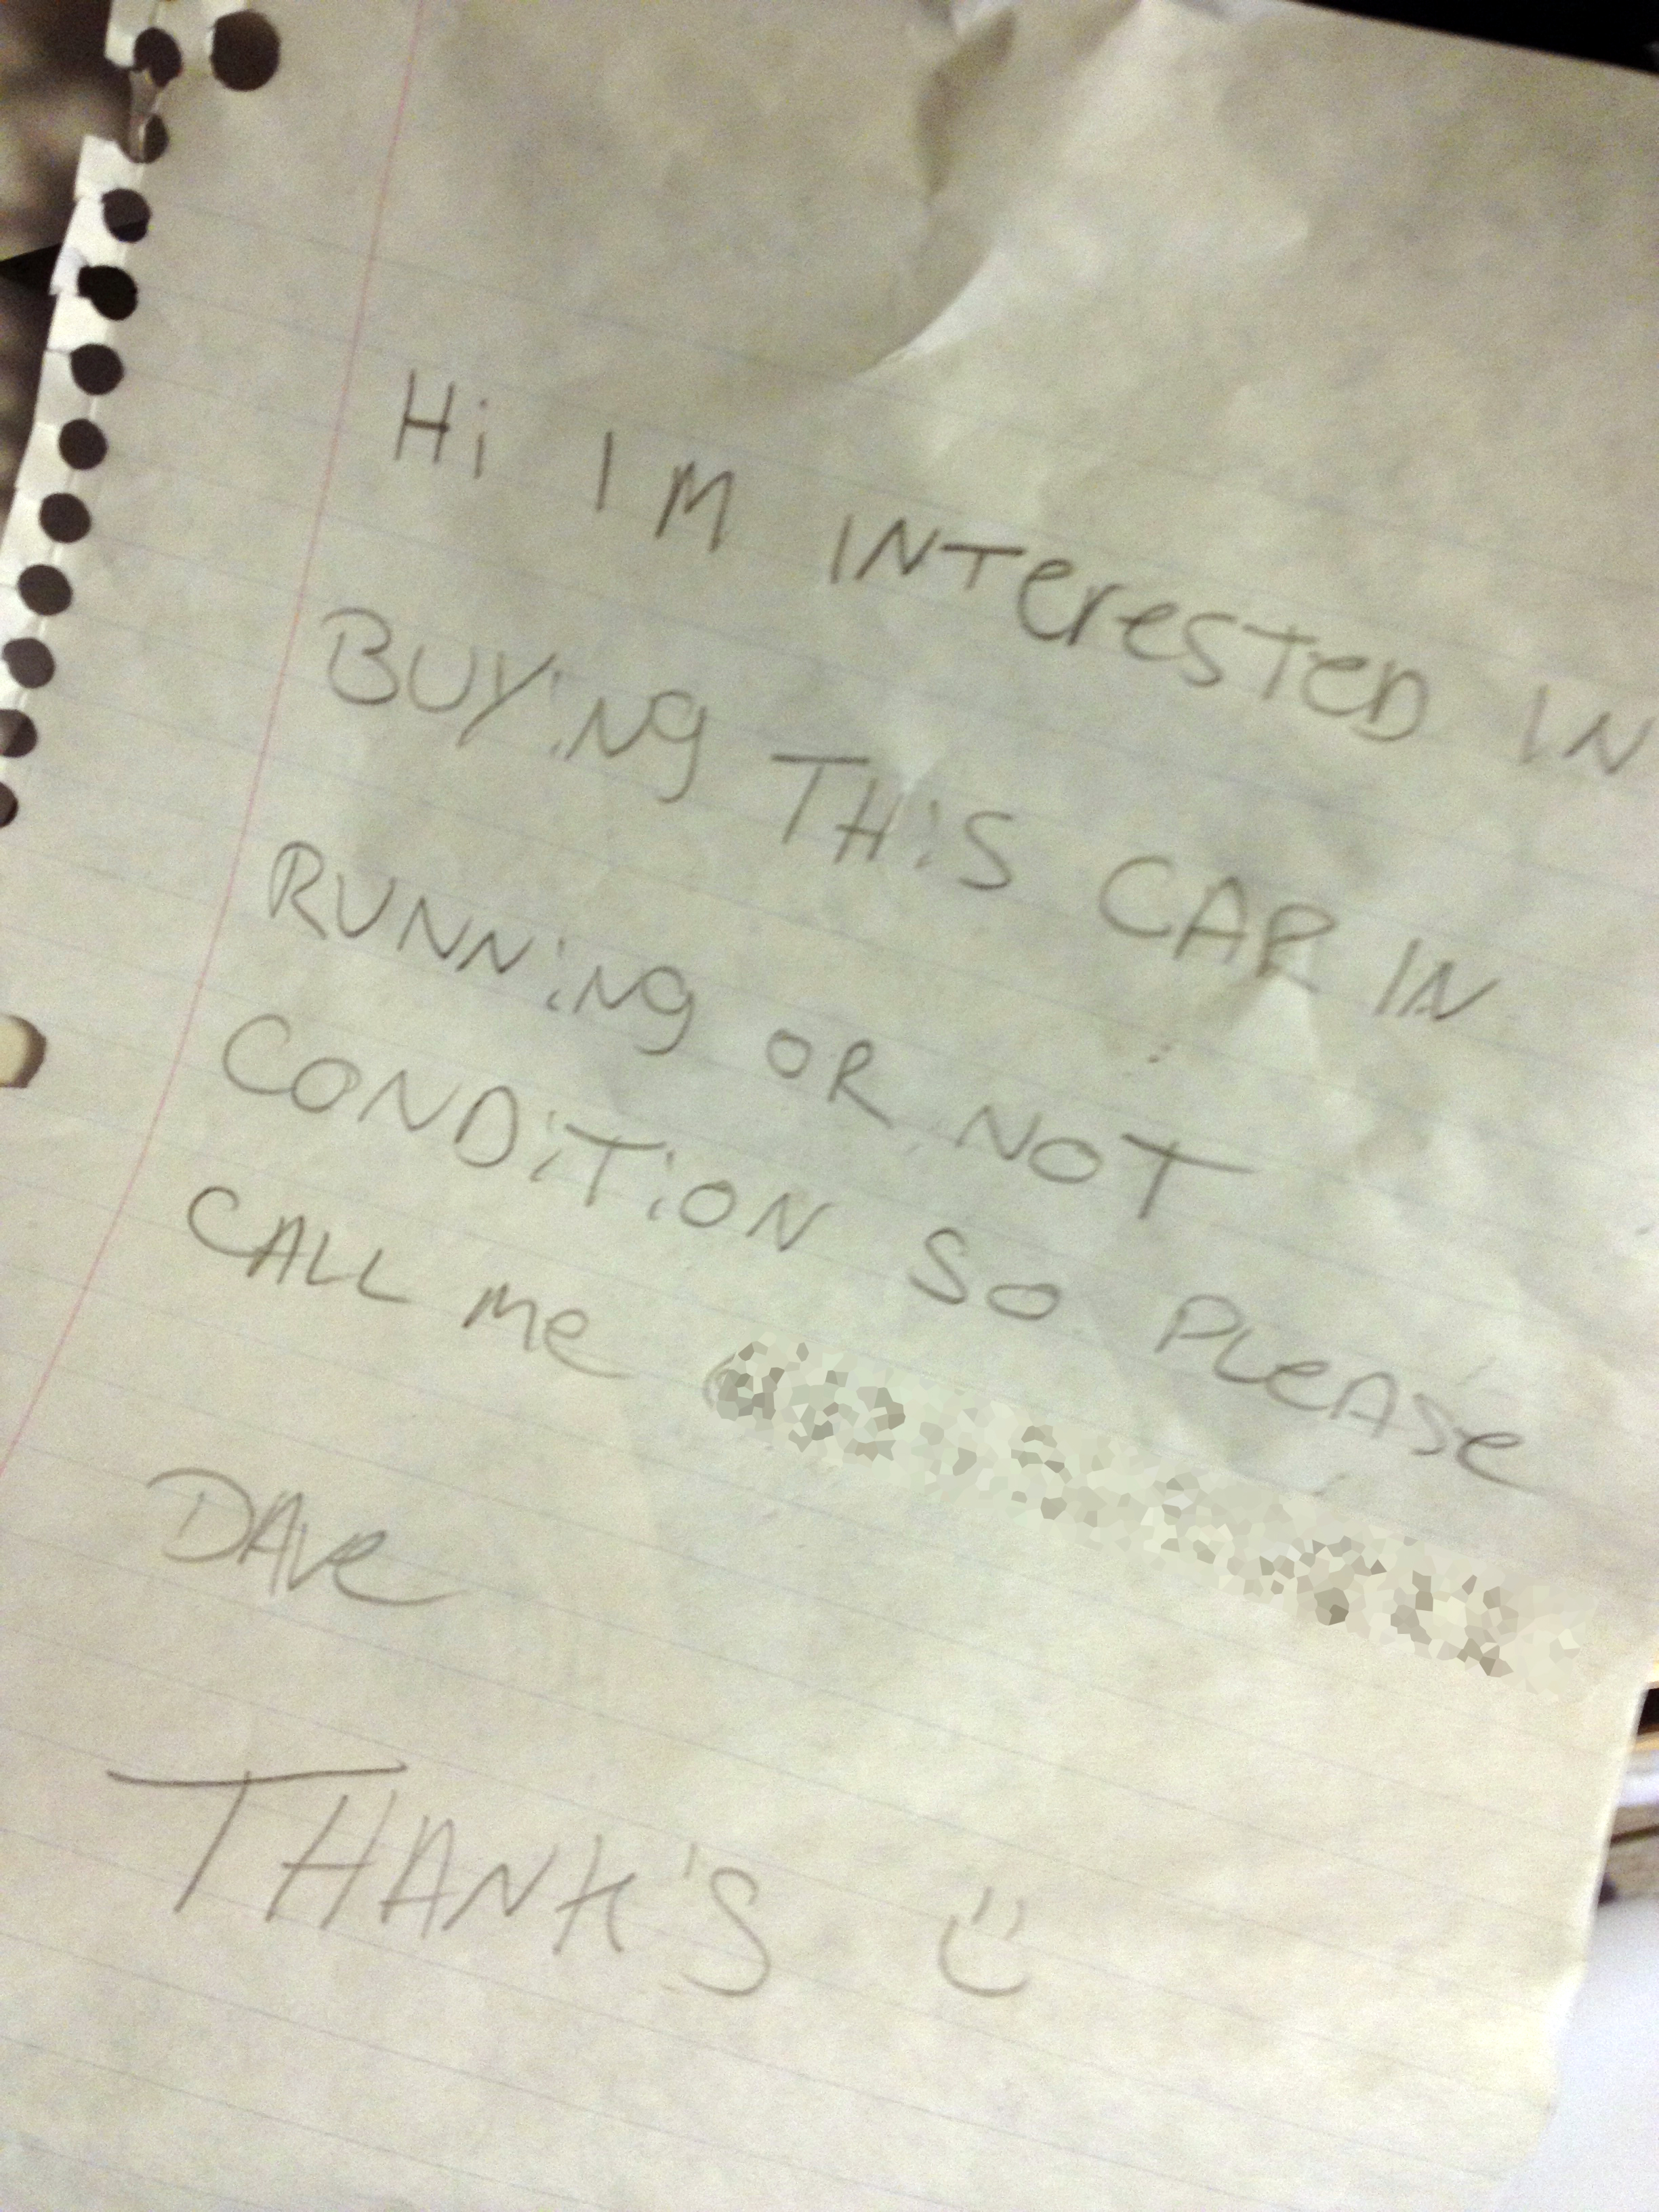 Hi IM INTeresTeD IN
BUYiNg THiS CAR IN
RUNNiNg OR NOT
CONDiTiON SO PLeASe
CALL me
DAve
THANK'S